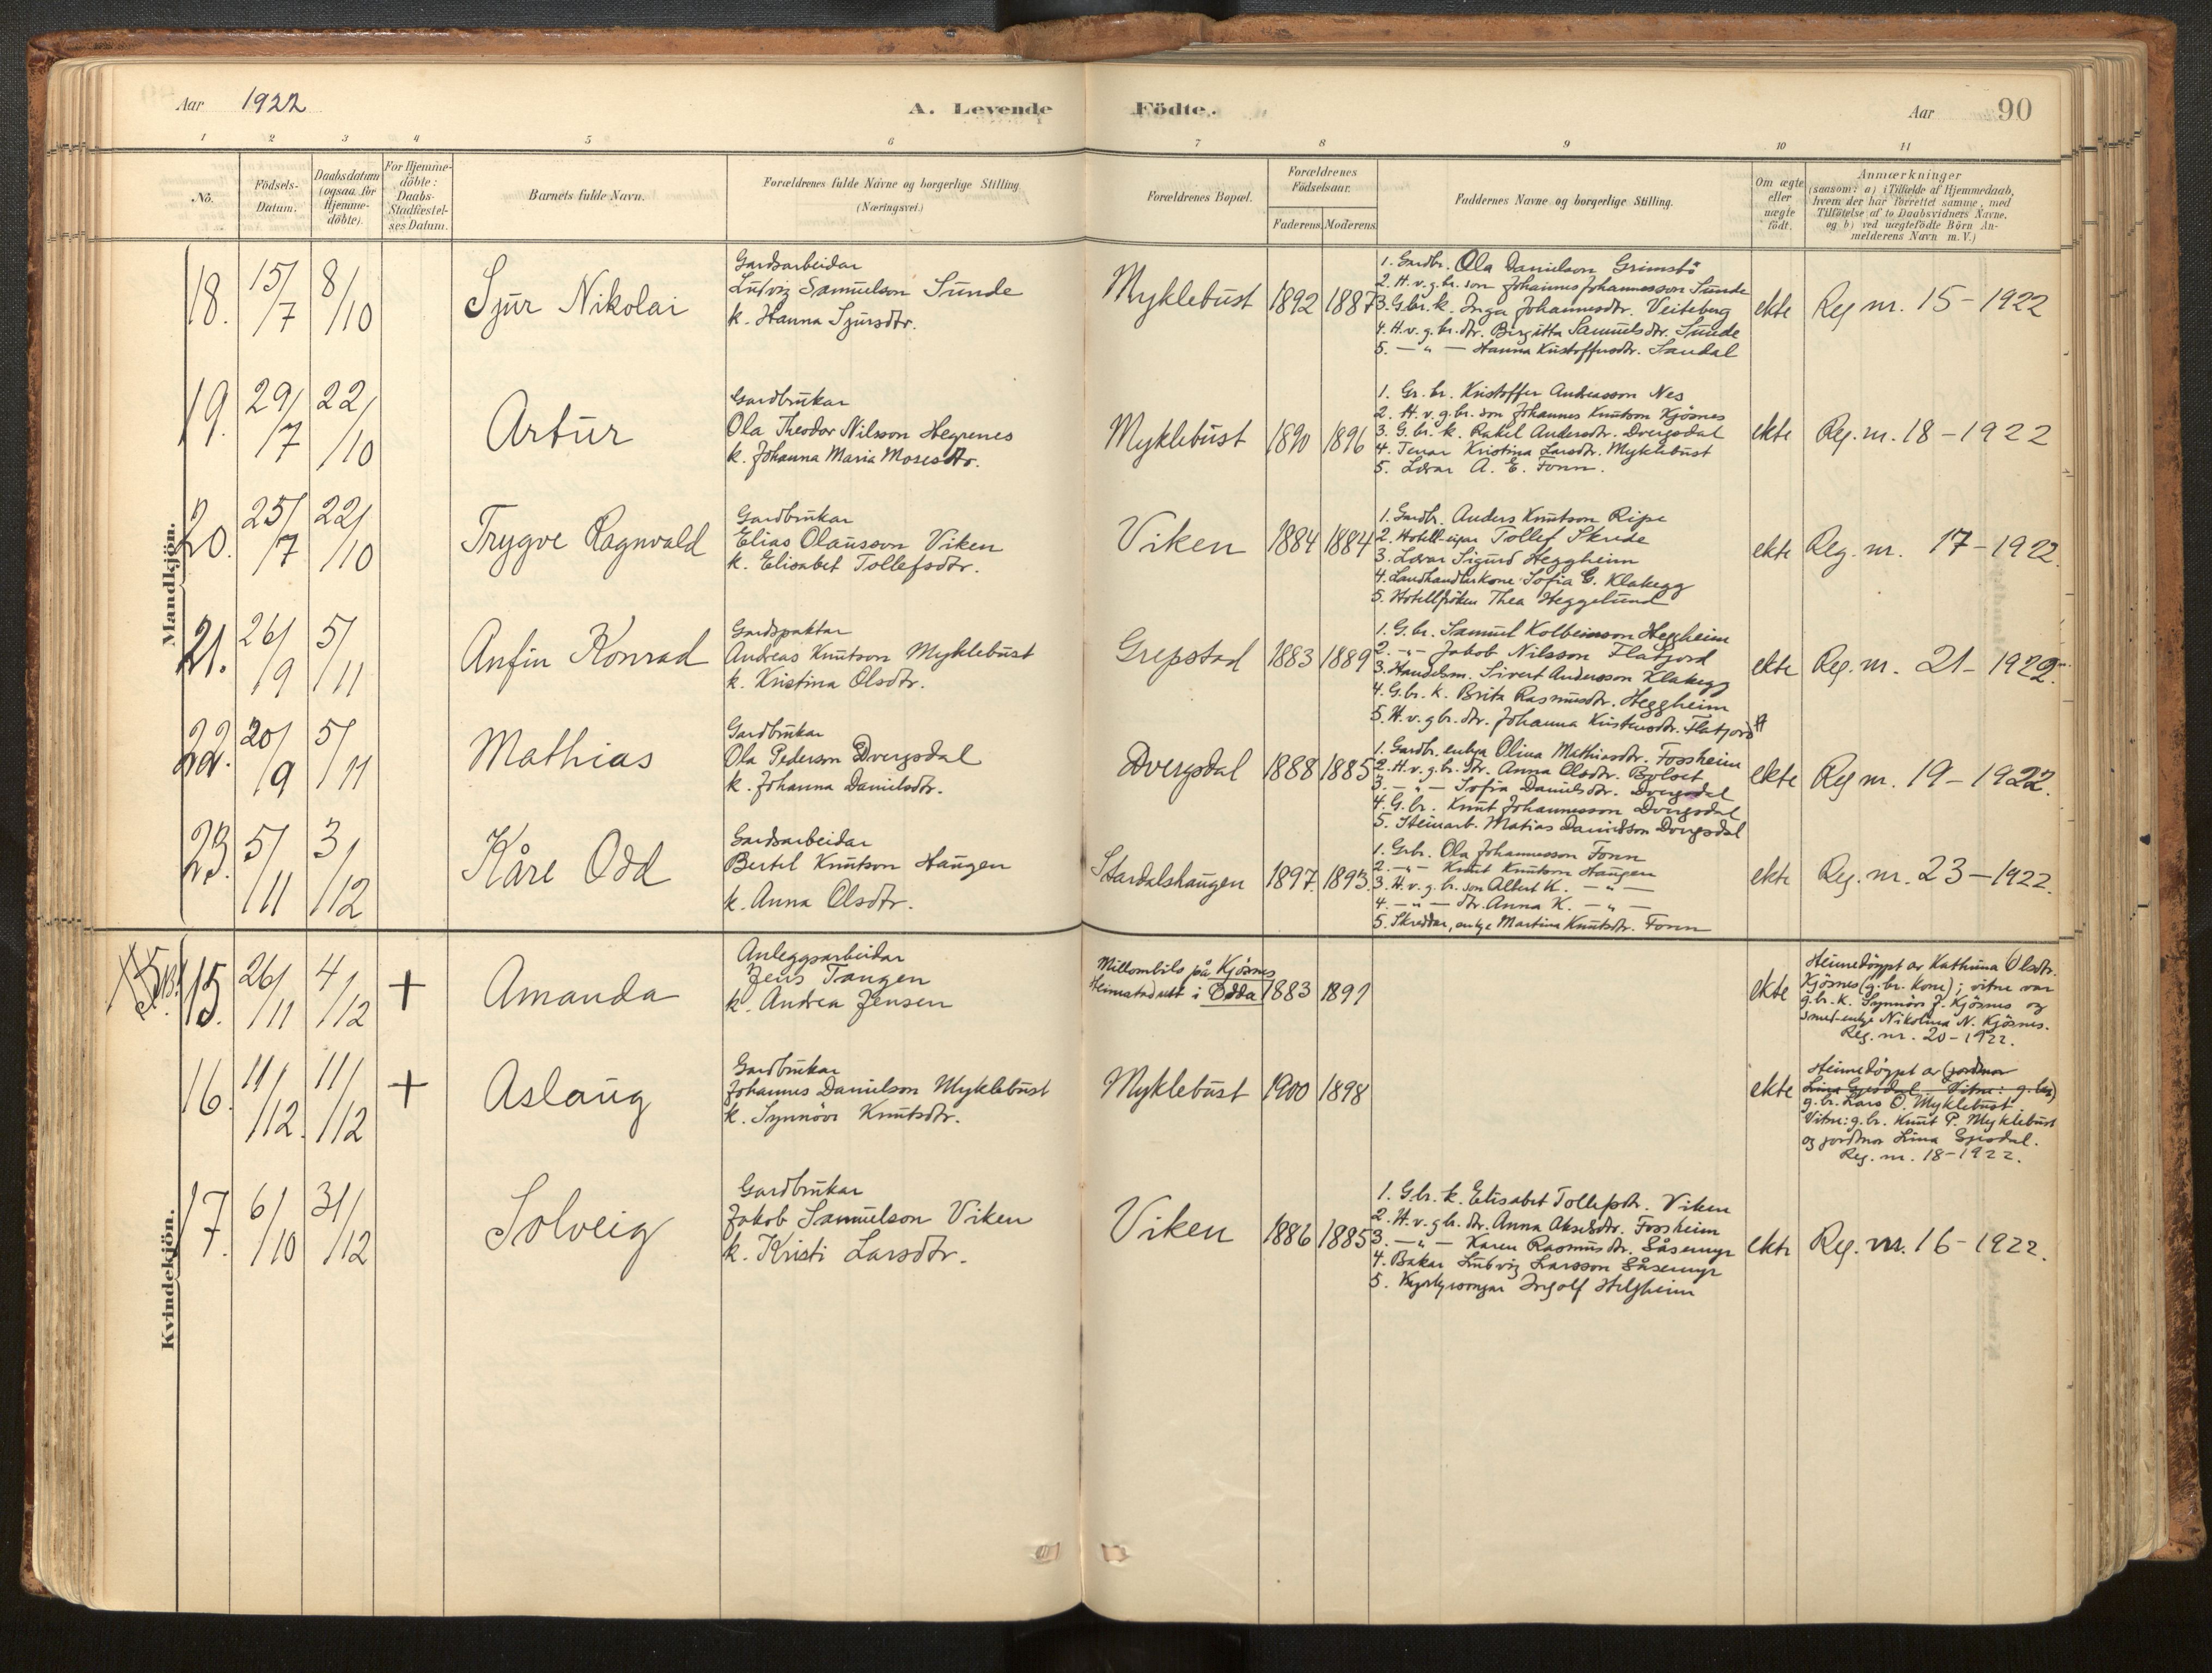 Aar 1922
A. Levende Födte.
Aar 90
1 2 3 4 5 6 7 8 9 10 11
No.
Födsels-
Datum.
Daabsdatum
(ogsaa for
Hjemme-
döbte).
For Hjemme-
döbte:
Daabs-
Stadfæstel-
ses Datum.
Barnets fulde Navn.
Forældrenes fulde Navne og borgerlige Stilling
(Næringsvei.)
Forældrenes Bopæl.
Forældrenes
Födselsaar.
Faderens. Moderens.
Faddernes Navne og borgerlige Stilling.
Om ægte
eller
uægte
födt.
Anmærkninger
(saasom: a) i Tilfælde af Hjemmedaab,
hvem der har forrettet samme, med
Tilföielse af to Daabsvidners Navne,
og b) ved uægtefödte Börn An-
melderens Navn m. V.)
Mandkjön.
18. 15/7 8/10
Sjur Nikolai
Gardsarbeidar
Ludvig Samuelson Sunde
k. Hanna Sjursdtr.
Myklebust 1892 1887
1. Gardbr. Ola Danielson Grimsbö
2. H. v. g. br. son Johannes Johannesson Sunde
3. G. br. k. Inga Johannesdtr. Veiteberg
4. H. v. g. br. dtr. Birgitta Samuelsdtr. Sunde
5. — " — Hanna Kristoffersdtr. Sandal
ekte Reg nr. 15 - 1922
19. 29/7 22/10
Artur
Gardbrukar
Ola Theodor Nilsson Hegrenes
k. Johanna Maria Mosesdtr.
Myklebust 1890 1896
1. Gr. br. Kristoffer Andreasson Nes
2. H. v. g. br. son Johannes Knutson Kjösnes
3. G. br. k. Rakel Andersdtr. Dvergsdal
4. Tenar Kristina Larsdtr. Myklebust
5. Lærar A. E. Fonn.
ekte Reg. nr. 18 - 1922
20. 25/7 22/10
Trygve Ragnvald
Gardbrukar
Elias Olausson Viken
k. Elisabet Tollefsdtr.
Viken 1884 1884
1. Gardbr. Anders Knutson Ripe
2. Hotell-eigar Tollef Skrede
3. Lærar Sigurd Heggheim
4. Landhandlarkone Sofia G. Klakegg
5. Hotellfröken Thea Heggelund
ekte Reg. nr. 17 - 1922.
21. 26/9 5/11
Anfin Konrad
Gardspaktar
Andreas Knutson Myklebust
k. Kristina Olsdtr.
Grepstad 1883 1889
1. G. br. Samuel Kolbeinson Heggheim
2. -"- Jakob Nilsson Flatjord
3. Handelsm. Sivert Andersson Klakegg
4. G. br. k. Brita Rasmusdtr. Heggheim
5. H. v. g br. dtr. Johanna Flatjord
ekte Reg. nr. 21 - 1922.
22. 20/9 5/11
Mathias
Gardbrukar
Ola Pederson Dvergsdal
k. Johanna Danielsdtr.
Dvergsdal 1888 1885
1. Gardbr. enkja Olina Mathiasdtr. Fossheim
2. H. v. g. br. dtr. Anna Olsdtr. Bolset
3. — " — Sofia Danielsdtr. Dvergsdal
4. G. br. Knut Johannesson Dvergsdal
5. Steinarb. Matias Danielson Dvergsdal
ekte Reg nr. 19 - 1922.
23. 5/11 3/12
Kåre Odd
Gardsarbeidar
Bertel Knutson Haugen
k. Anna Olsdtr.
Stardalshaugen 1897. 1893.
1. Grbr. Ola Johannesson Fonn
2. -"- Knut Knutson Haugen
3. H. v. g. br. son Albert K. — " —
4. — " — dtr. Anna K. — " —
5. Skreddar, enkje Martina Knutsdtr. Fonn
ekte Reg. nr. 23 - 1922.
Kvindekjön.
15. 26/11 4/12 +
Amanda
Anleggsarbeidar
Jens Tangen
k. Andrea Jensen
Millombils på Kjösnes
Heimstad rett i Odda 1883 1891
ekte
Heimedöypt av Kathrina Olsdtr.
Kjösnes (g. br. kone); vitne var
g. br. k. Synnöve J. Kjösnes og
smed-enkje Nikolina N. Kjösnes.
Reg. nr. 20 - 1922.
16. 11/12. 11/12 +
Aslaug
Gardbrukar
Johannes Danielson Myklebust
k. Synnöve Knutsdtr.
Myklebust 1900 1898
ekte
Heimedöypt av (jordmor
Lina Gjesdal Vitne: g. br.)
g. br. Lars O. Myklebust
Vitne: g. br. Knut P. Myklebust
og jordmor Lina Gjesdal.
Reg. nr. 18 - 1922.
17. 6/10 31/12
Solveig
Gardbrukar
Jakob Samuelson Viken
k. Kristi Larsdtr.
Viken 1886 1885
1. G. br. k. Elisabet Tollefsdtr. Viken
2. H. v. g br. dtr. Anna Akseldtr. Fossheim
3. — " — Karen Rasmusdtr. Såsemyr
4. Bakar Ludvig Larsson Såsemyr
5. Kyrkjesongar Ingolf Helgheim
ekte Reg. nr. 16 - 1922.